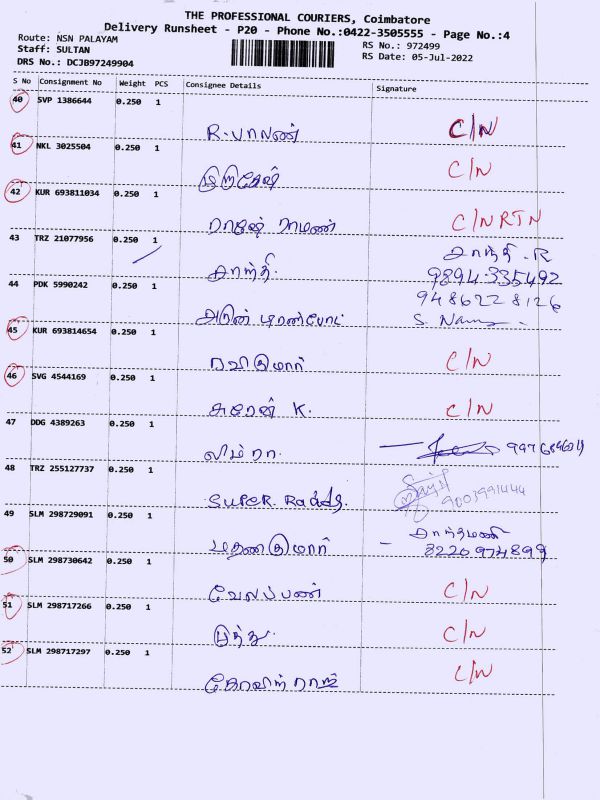 THE PROFESSIONAL COURIERS, Coimbatore
Delivery Runsheet - P20 - Phone No.:0422-3505555 - Page No.:4
Route: NSN PALAYAM
RS No.: 972499
Staff: SULTAN
RS Date: 05-Jul-2022
DRS No.: DCJB97249904
S No Consignment No Weight PCS Consignee Details Signature
40 SVP 1386644 0.250 1
R. பாலன் C/N
41 NKL 3025504 0.250 1
C/N
42 KUR 693811034 0.250 1
C/N RTN
43 TRZ 21077956 0.250 1
சாந்தி. சாந்தி .R
9894335492
44 PDK 5990242 0.250 1
9486228126
அருன் டிரான்போட்
45 KUR 693814654 0.250 1
ரவிகுமார் C/N
46 SVG 4544169 0.250 1
சுரேன் K. C/N
47 DDG 4389263 0.250 1
லிம்ரா.
48 TRZ 255127737 0.250 1
SUPER
49 SLM 298729091 0.250 1
மதனகுமார் - சாந்தாமணி
8220974899
50 SLM 298730642 0.250 1
வேலப்பன் C/N
51 SLM 298717266 0.250 1
முத்து. C/N
52 SLM 298717297 0.250 1
கோவிந்ராஜ் C/N